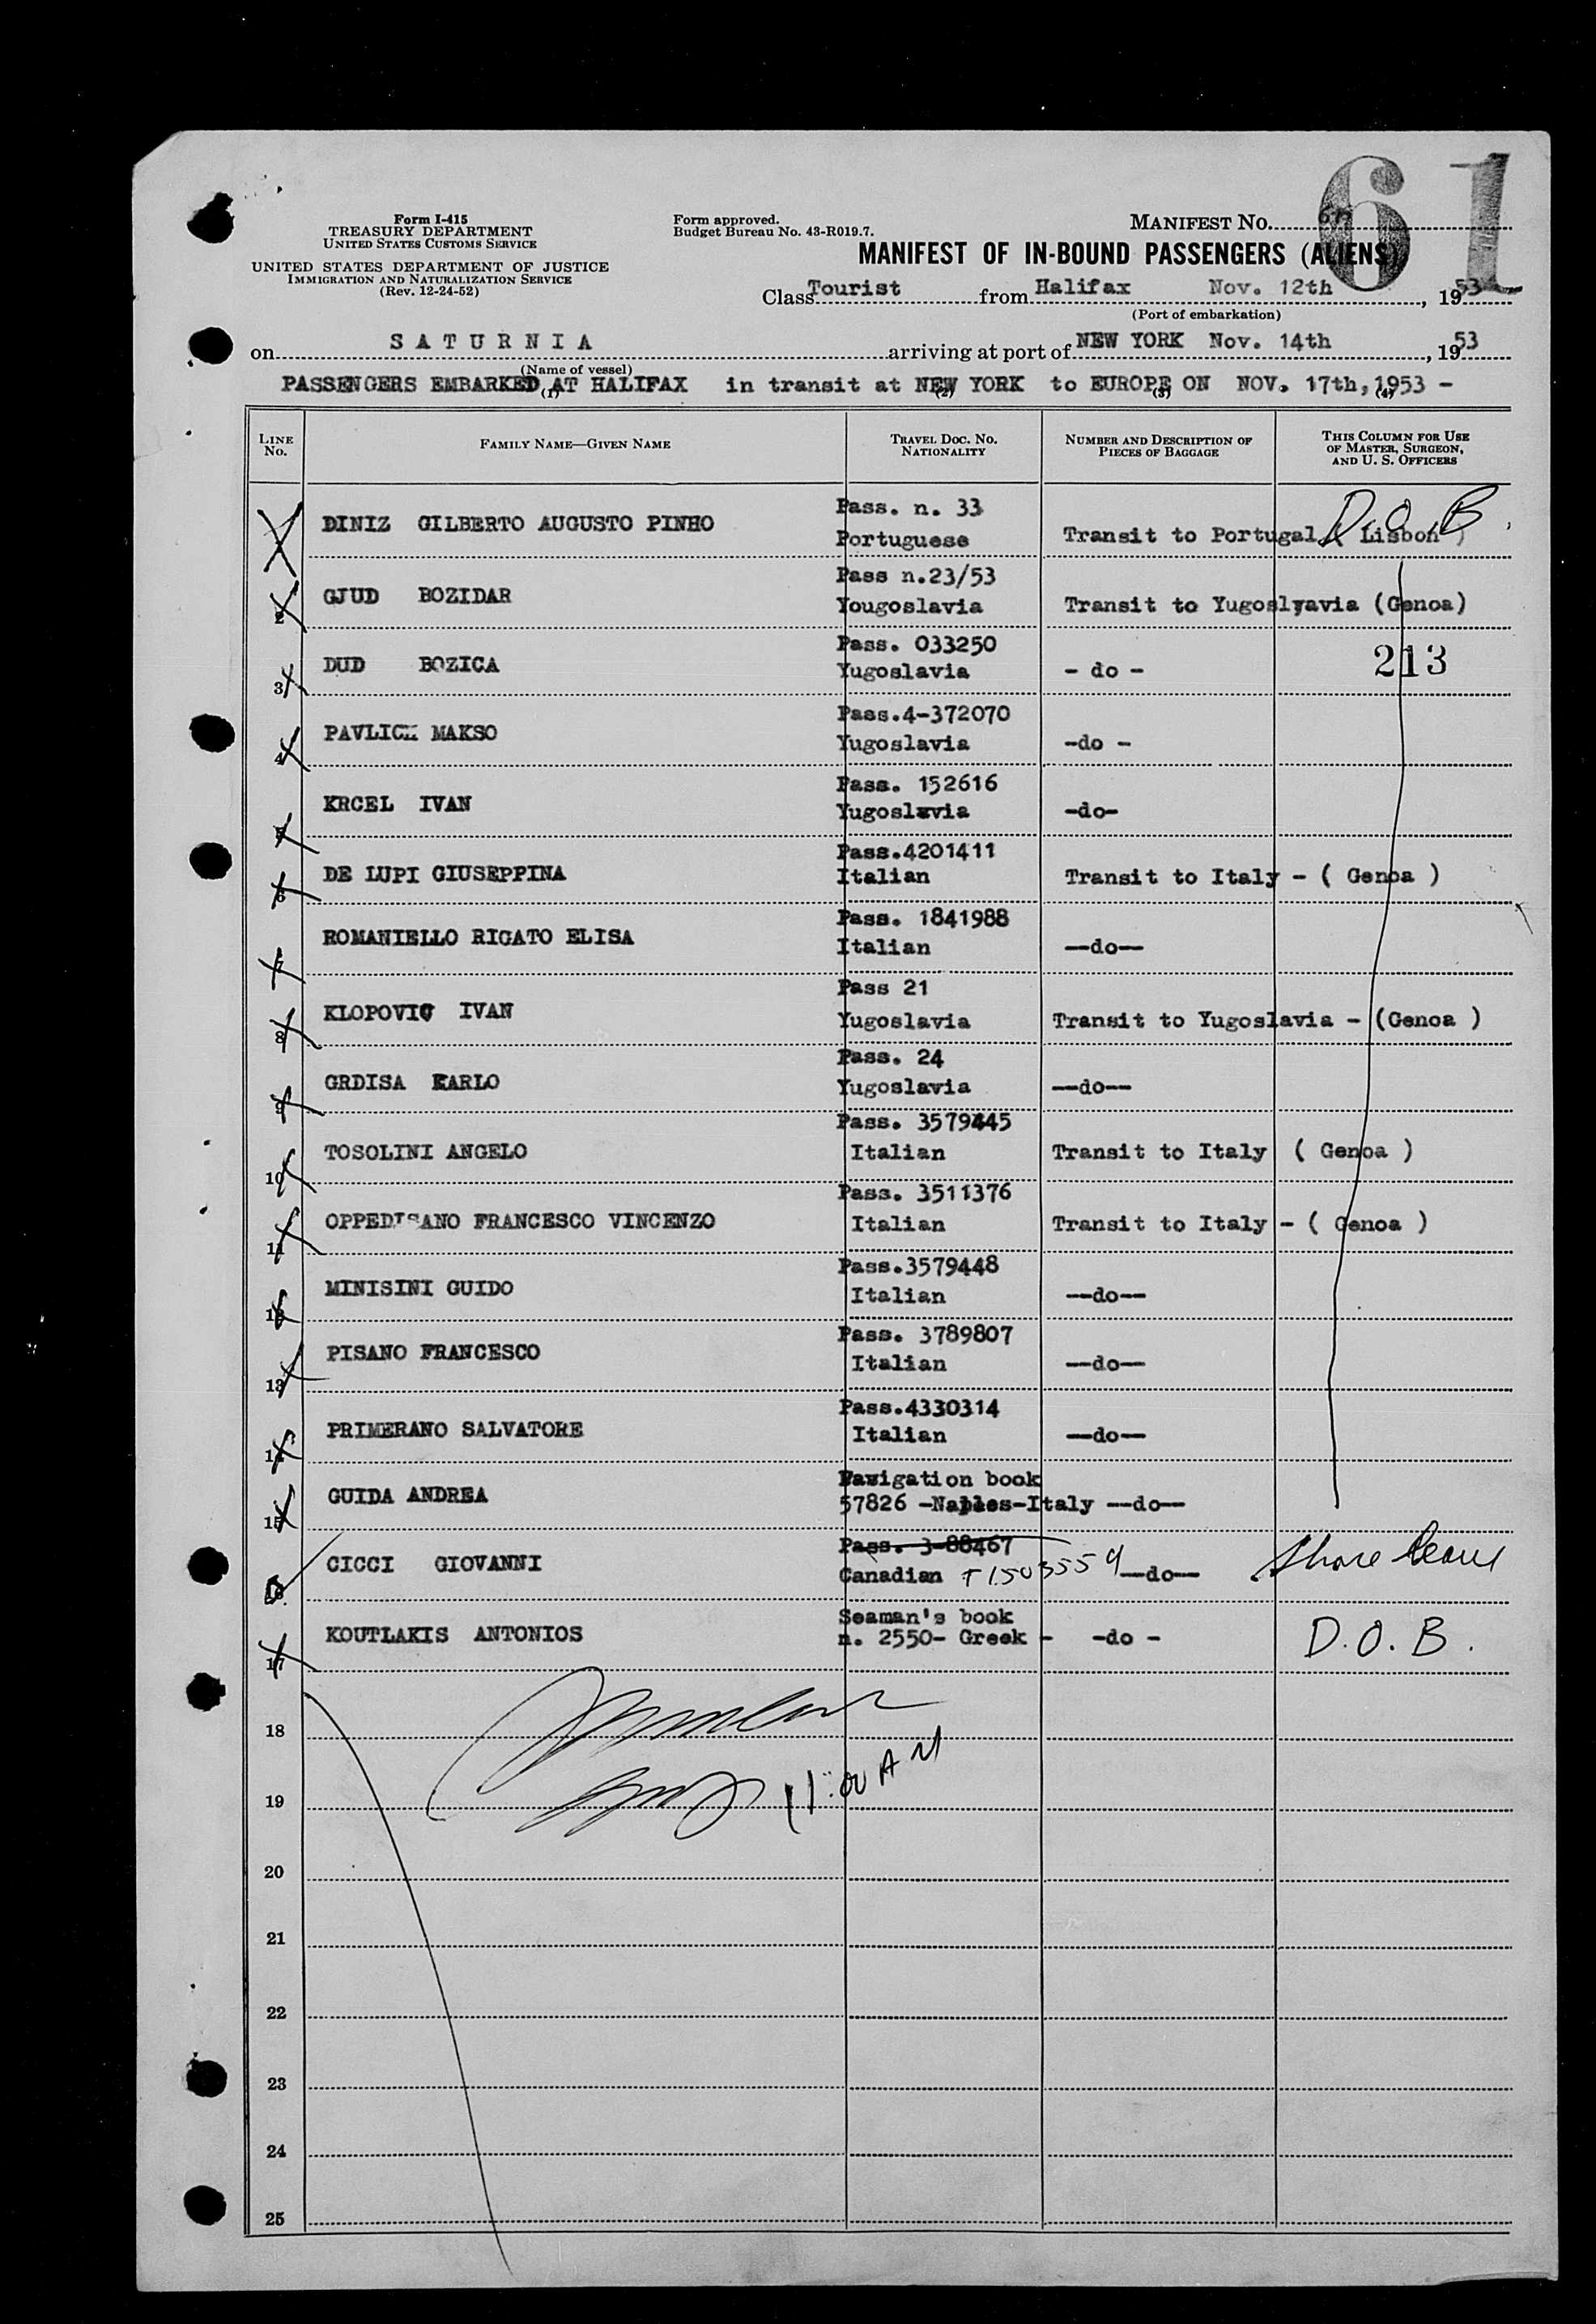 61
Form I-415
TREASURY DEPARTMENT
UNITED STATES CUSTOMS SERVICE
UNITED STATES DEPARTMENT OF JUSTICE
IMMIGRATION AND NATURALIZATION SERVICE
(Rev. 12-24-52)
Form approved.
Budget Bureau No. 43-R019.7.
MANIFEST NO.
MANIFEST OF IN-BOUND PASSENGERS (ALIENS)
Class Tourist from Halifax Nov. 12th, 1953
(Port of embarkation)
on S A T U R N I A arriving at port of NEW YORK Nov. 14th, 1953
(Name of vessel)
PASSENGERS EMBARKED AT HALIFAX in transit at NEW YORK to EUROPE ON NOV. 17th, 1953 -
(1) (2) (3) (4)
LINE No. FAMILY NAME—GIVEN NAME TRAVEL DOC. NO. NATIONALITY NUMBER AND DESCRIPTION OF PIECES OF BAGGAGE THIS COLUMN FOR USE OF MASTER, SURGEON, AND U. S. OFFICERS
DINIZ GILBERTO AUGUSTO PINHO Pass. n. 33 Portuguese Transit to Portugal ( Lisbon ) D.O.B.
2 GJUD BOZIDAR Pass n.23/53 Yougoslavia Transit to Yugoslyavia (Genoa)
3 DUD BOZICA Pass. 033250 Yugoslavia - do - 213
4 PAVLICK MAKSO Pass.4-372070 Yugoslavia -do -
5 KRCEL IVAN Pass. 152616 Yugoslavia -do-
6 DE LUPI GIUSEPPINA Pass.4201411 Italian Transit to Italy - ( Genoa )
7 ROMANIELLO RIGATO ELISA Pass. 1841988 Italian --do--
8 KLOPOVIC IVAN Pass 21 Yugoslavia Transit to Yugoslavia - (Genoa )
9 GRDISA KARLO Pass. 24 Yugoslavia --do--
10 TOSOLINI ANGELO Pass. 3579445 Italian Transit to Italy ( Genoa )
11 OPPEDISANO FRANCESCO VINCENZO Pass. 3511376 Italian Transit to Italy - ( Genoa )
12 MINISINI GUIDO Pass.3579448 Italian --do--
13 PISANO FRANCESCO Pass. 3789807 Italian --do--
14 PRIMERANO SALVATORE Pass.4330314 Italian --do--
15 GUIDA ANDREA Navigation book 57826 -Naples-Italy --do--
16 CICCI GIOVANNI Pass. 3-88467 Canadian T1503559 --do-- Shore leave
17 KOUTLAKIS ANTONIOS Seaman's book n. 2550- Greek - -do - D.O.B.
18
11:00 AM
19
20
21
22
23
24
25